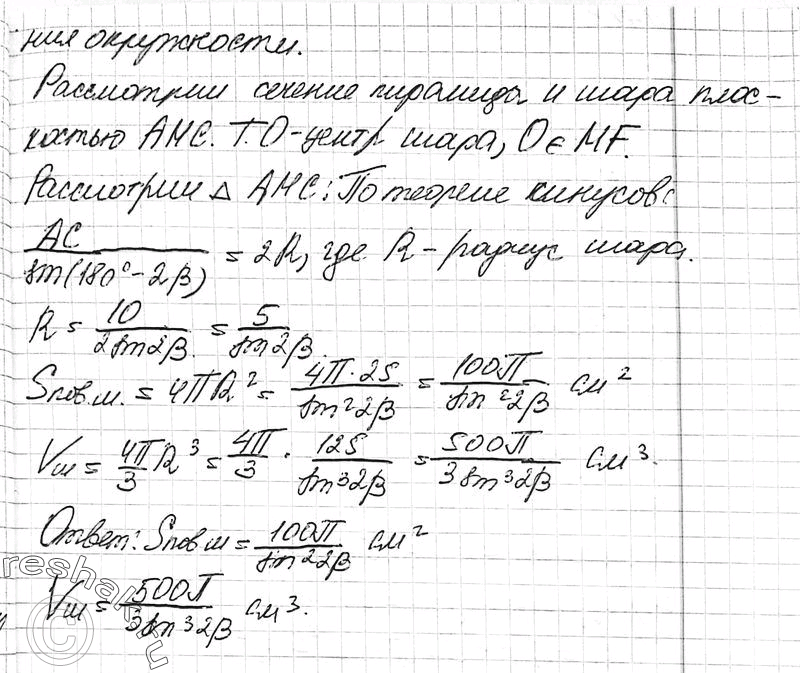 ния окружности.
Рассмотрим сечение пирамиды и шара плос-
костью AMC. Т.O-центр шара, O∈MF.
Рассмотрим △ AMC: По теореме синусов:
AC/sin(180°-2β) = 2R, где R - радиус шара.
R = 10/2sin2β = 5/sin2β.
Sпов.ш. = 4πR² = 4π·25/sin²2β = 100π/sin²2β см²
Vш = 4π/3 R³ = 4π/3 · 125/sin³2β = 500π/3sin³2β см³.
Ответ: Sпов ш = 100π/sin²2β см²
Vш = 500π/3sin³2β см³.
©reshak.ru